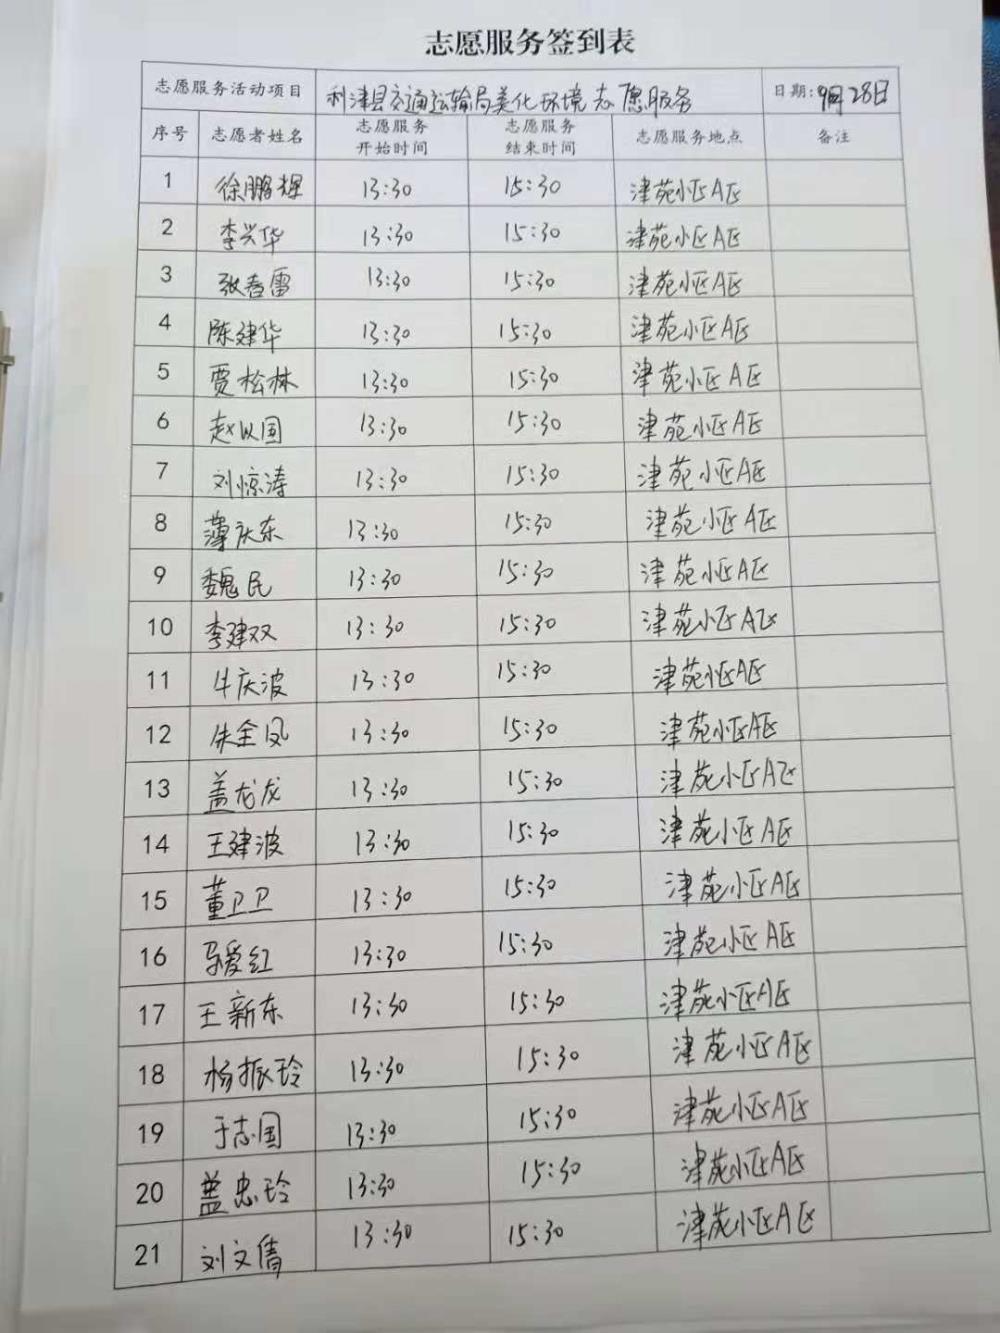 志愿服务签到表
志愿服务活动项目 利津县交通运输局美化环境志愿服务 日期:9月28日
序号 志愿者姓名 志愿服务开始时间 志愿服务结束时间 志愿服务地点 备注
1 徐鹏程 13:30 15:30 津苑小区A区
2 李兴华 13:30 15:30 津苑小区A区
3 张春雷 13:30 15:30 津苑小区A区
4 陈建华 13:30 15:30 津苑小区A区
5 贾松林 13:30 15:30 津苑小区A区
6 赵以国 13:30 15:30 津苑小区A区
7 刘惊涛 13:30 15:30 津苑小区A区
8 薄庆东 13:30 15:30 津苑小区A区
9 魏民 13:30 15:30 津苑小区A区
10 李建双 13:30 15:30 津苑小区A区
11 牛庆波 13:30 15:30 津苑小区A区
12 朱全凤 13:30 15:30 津苑小区A区
13 盖龙龙 13:30 15:30 津苑小区A区
14 王建波 13:30 15:30 津苑小区A区
15 董卫卫 13:30 15:30 津苑小区A区
16 马爱红 13:30 15:30 津苑小区A区
17 王新东 13:30 15:30 津苑小区A区
18 杨振玲 13:30 15:30 津苑小区A区
19 于志国 13:30 15:30 津苑小区A区
20 盖忠玲 13:30 15:30 津苑小区A区
21 刘文倩 13:30 15:30 津苑小区A区